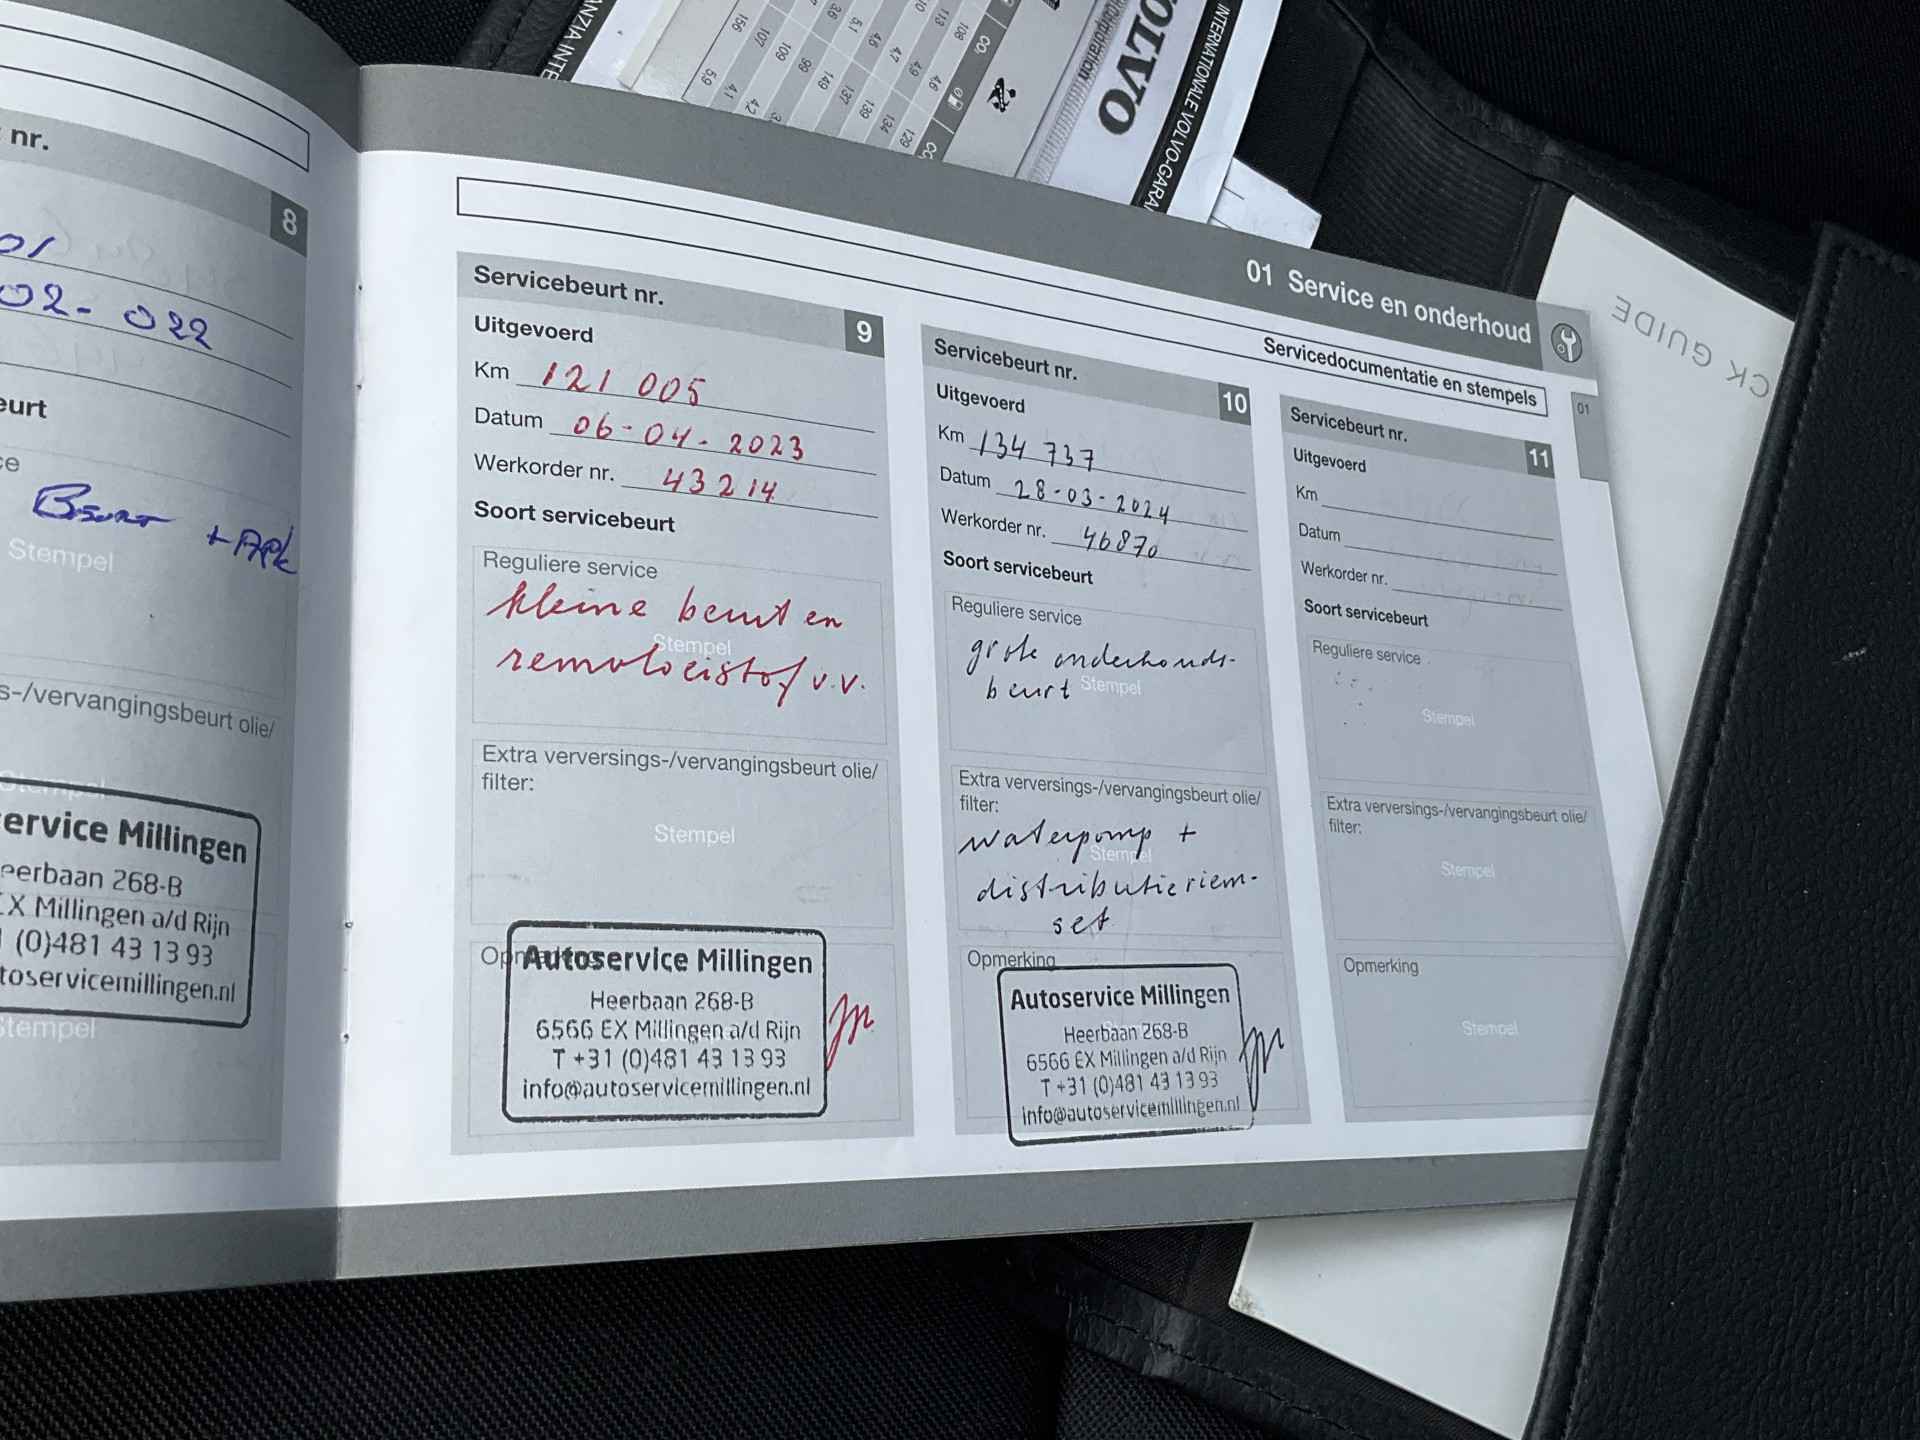 ANZIA INTE
VOLVO
Corporation
INTERNATIONALE VOLVO-GARA
CK GUIDE
nr.
8
02-022
eurt
ce
Beurt + APK
Stempel
s-/vervangingsbeurt olie/
Stempel
ervice Millingen
eerbaan 268-B
EX Millingen a/d Rijn
1 (0)481 43 13 93
toservicemillingen.nl
Stempel
01 Service en onderhoud
Servicedocumentatie en stempels
01
Servicebeurt nr. 9
Uitgevoerd
Km 121 005
Datum 06-04-2023
Werkorder nr. 43214
Soort servicebeurt
Reguliere service
kleine beurt en
Stempel
remvloeistof v.v.
Extra verversings-/vervangingsbeurt olie/
filter:
Stempel
Opmerking
Autoservice Millingen
Heerbaan 268-B
6566 EX Millingen a/d Rijn
T +31 (0)481 43 13 93
info@autoservicemillingen.nl
Servicebeurt nr. 10
Uitgevoerd
Km 134 737
Datum 28-03-2024
Werkorder nr. 46870
Soort servicebeurt
Reguliere service
grote onderhouds-
beurt
Stempel
Extra verversings-/vervangingsbeurt olie/
filter:
waterpomp +
Stempel
distributieriem-
set
Opmerking
Autoservice Millingen
Heerbaan 268-B
6566 EX Millingen a/d Rijn
T +31 (0)481 43 13 93
info@autoservicemillingen.nl
Servicebeurt nr. 11
Uitgevoerd
Km
Datum
Werkorder nr.
Soort servicebeurt
Reguliere service
Stempel
Extra verversings-/vervangingsbeurt olie/
filter:
Stempel
Opmerking
Stempel